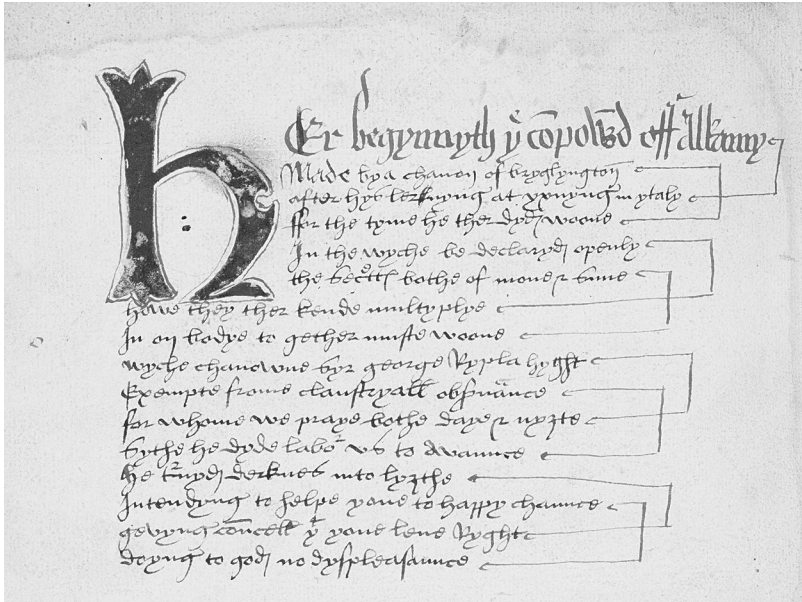 hEr begynnyth yͤ cōpownd off Alkamy
Made by a chanon of bryglyngton
after hys lernyng at yxnyng in ytaly
ffor the tyme he ther dyd woone
In the wyche be declaryd openly
the secrets bothe of mone & sune
howe they ther kende multyplye
In on bodye to gether muste woone
wyche chanowne syr george Rypla hyght
Exempte frome claustryall obseruance
for whome we praye bothe daye & nyȝte
Sythe he dyde laboʳ vs to avaunce
he tᵘrnyd derknes into lyȝthe
Intendyng to helpe youe to happy chaunce
gevyng cōncell yͭ youe leue Ryght
doyng to god no dyspleasaunce